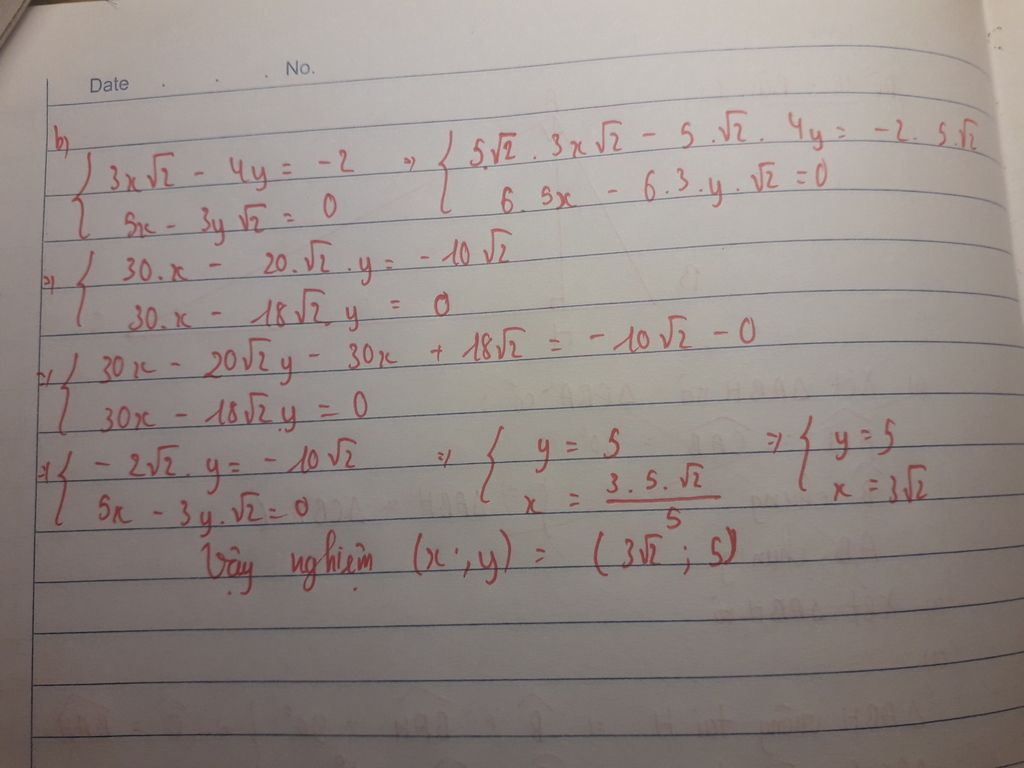 Date . . . No.
b)
3x√2 - 4y = -2 => 5√2 . 3x√2 - 5 . √2 . 4y = -2 . 5 . √2
5x - 3y√2 = 0 6 . 5x - 6 . 3 . y . √2 = 0
=> 30 . x - 20 . √2 . y = -10√2
30 . x - 18√2 . y = 0
=> 30x - 20√2y - 30x + 18√2 = -10√2 - 0
30x - 18√2 . y = 0
=> -2√2 . y = -10√2 => y = 5 => y = 5
5x - 3y . √2 = 0 x = (3 . 5 . √2)/5 x = 3√2
Vậy nghiệm (x ; y) = (3√2 ; 5)